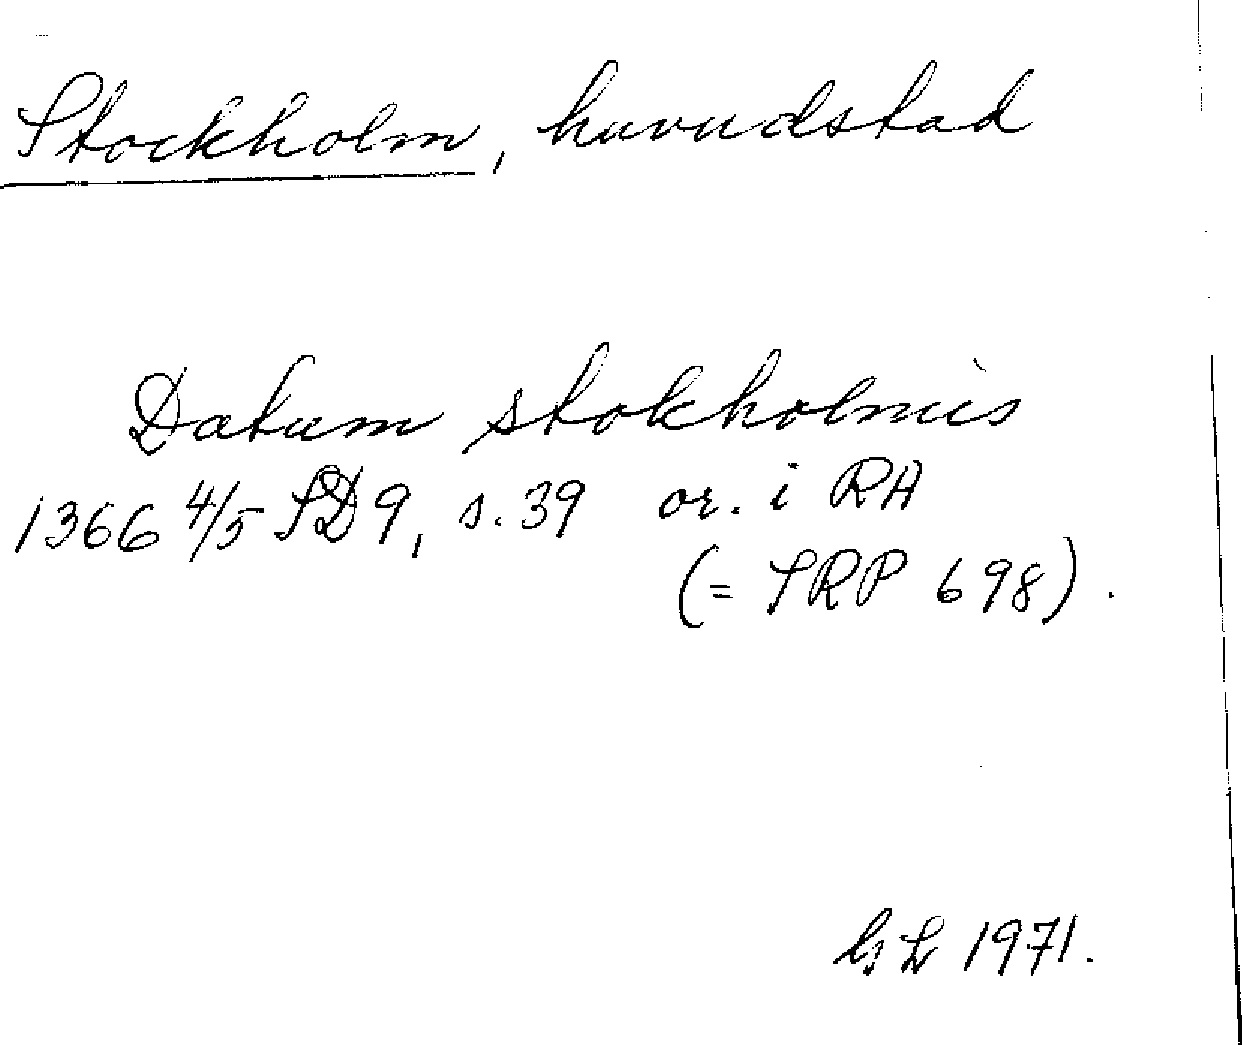 Stockholm, huvudstad
Datum stokholmis
1366 4/5 SD 9, s. 39 or. i RA
(= SRP 698).
GL 1971.